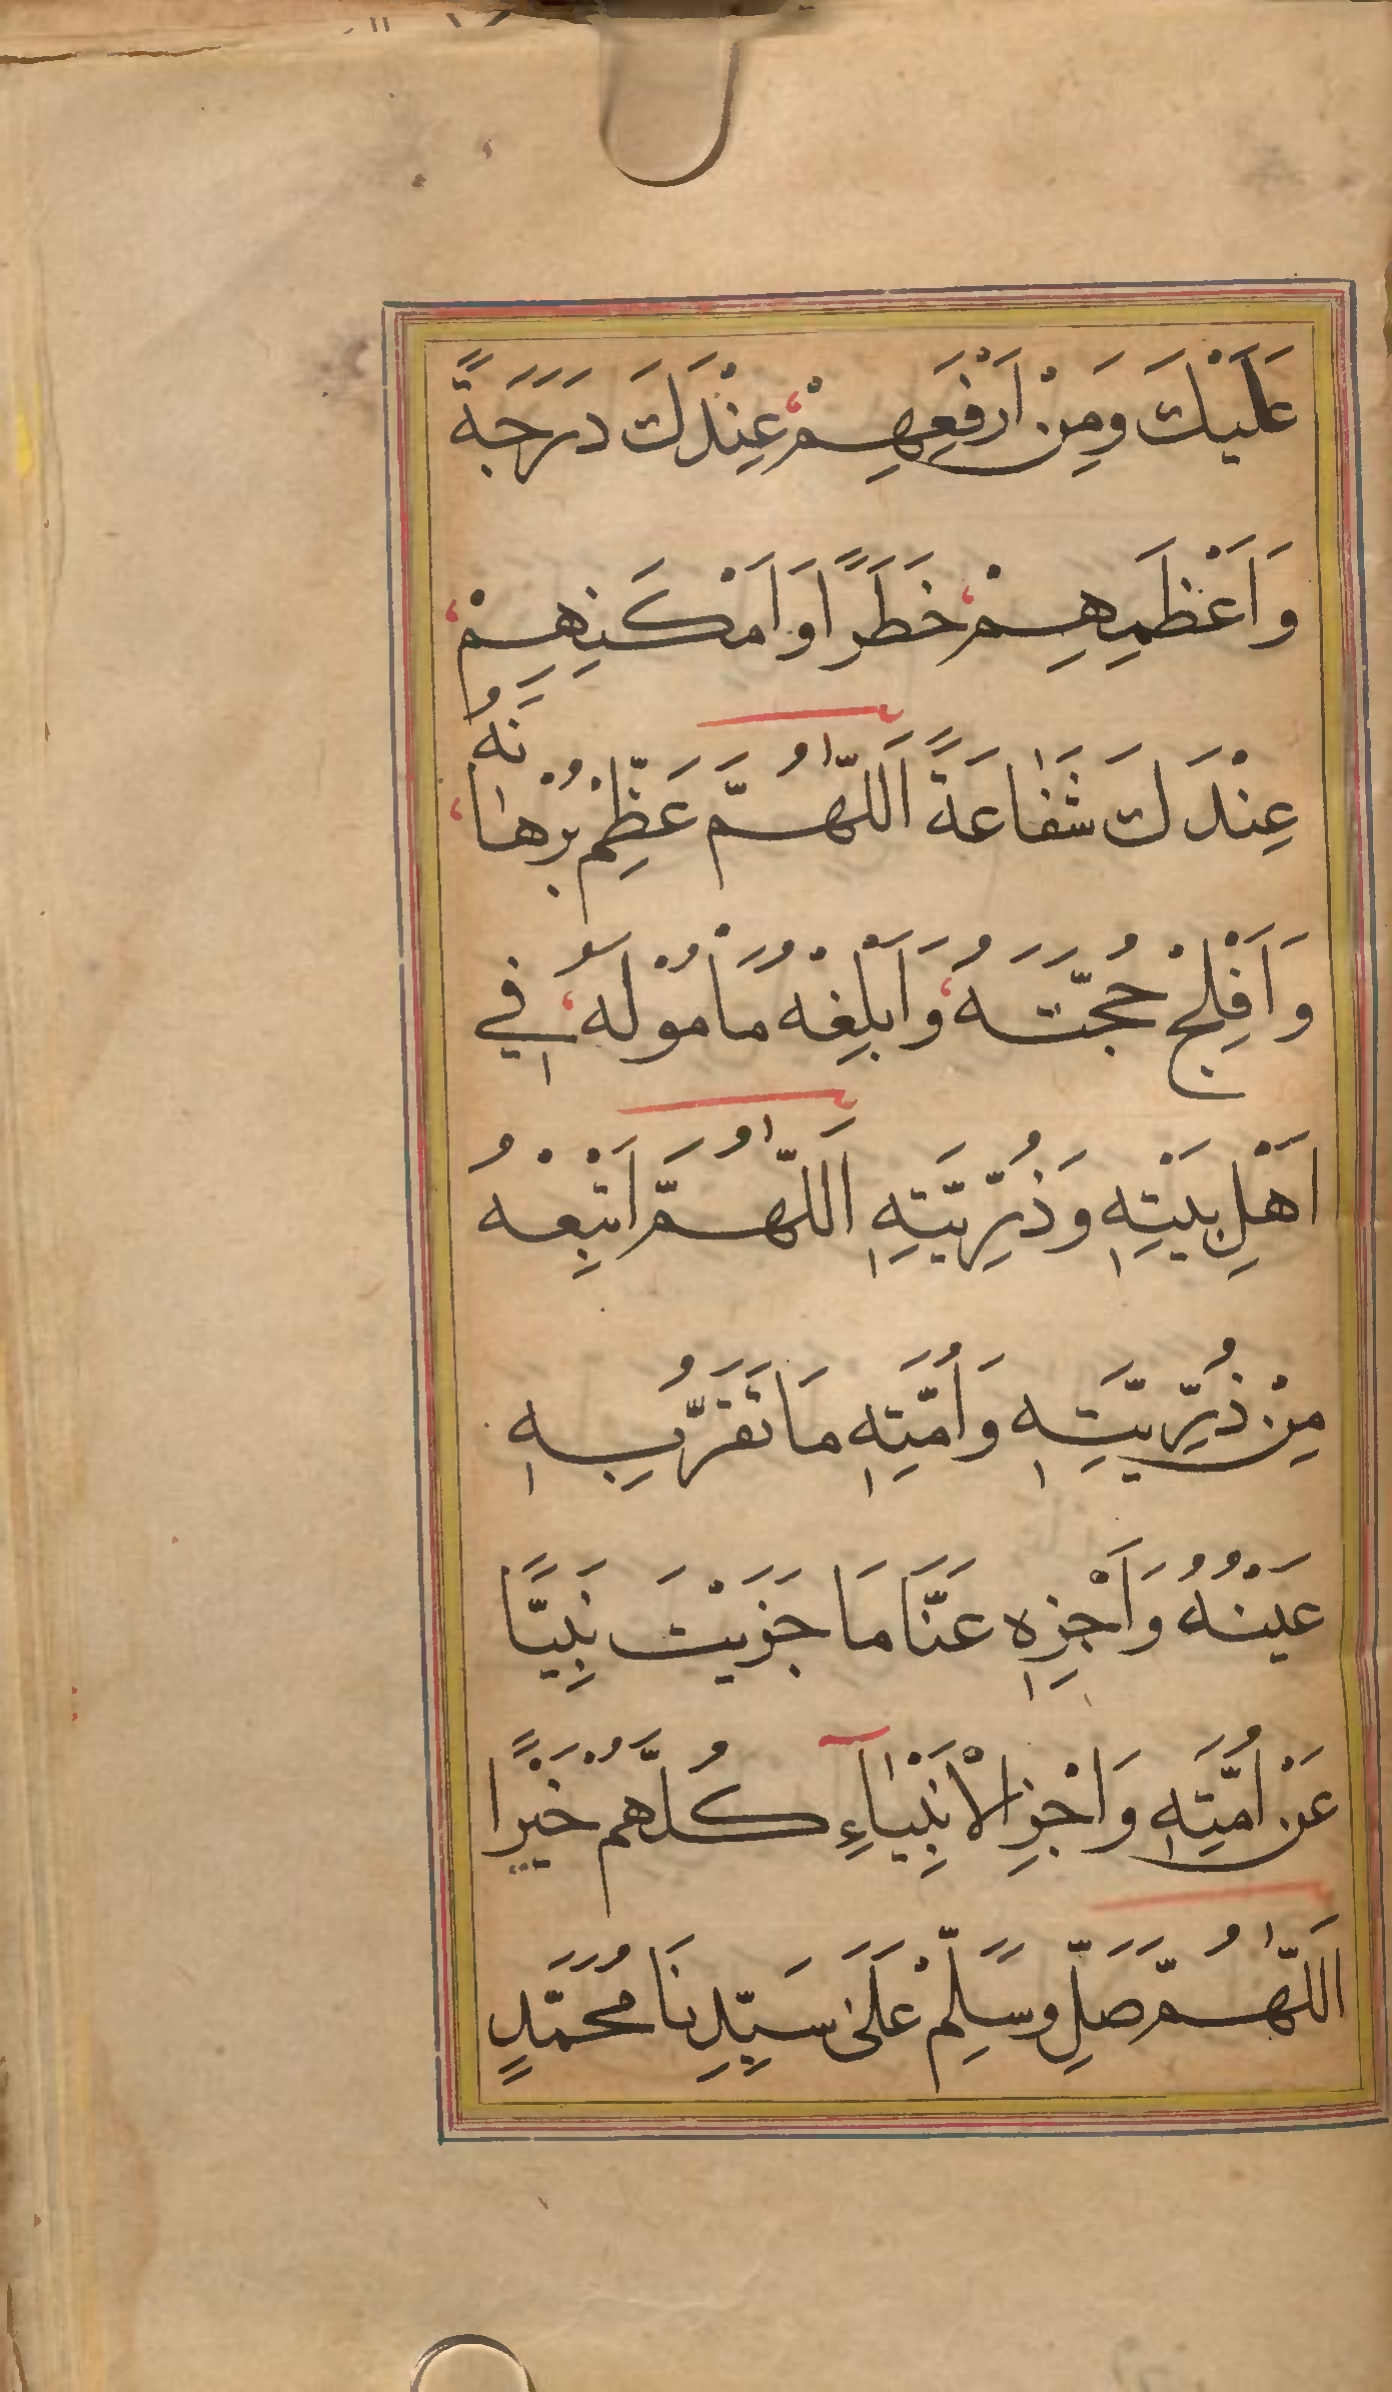 عَلَيْكَ وَمِنْ اَرْفَعِهِمْ عِنْدَكَ دَرَجَةً
وَاَعْظَمِهِمْ خَطَرًا وَاَمْكَنِهِمْ
عِنْدَكَ شَفَاعَةً اَللّٰهُمَّ عَظِّمْ بُرْهَانَهُ
وَاَفْلِجْ حُجَّتَهُ وَاَبْلِغْهُ مَأْمُوْلَهُ فِي
اَهْلِ بَيْتِهِ وَذُرِّيَّتِهِ اَللّٰهُمَّ اَتْبِعْهُ
مِنْ ذُرِّيَّتِهِ وَاُمَّتِهِ مَا تَقَرُّ بِهِ
عَيْنُهُ وَاَجْزِهِ عَنَّا مَا جَزَيْتَ نَبِيًّا
عَنْ اُمَّتِهِ وَاَجْزِ الْاَنْبِيَآءِ كُلَّهُمْ خَيْرًا
اَللّٰهُمَّ صَلِّ وَسَلِّمْ عَلَى سَيِّدِنَا مُحَمَّدٍ